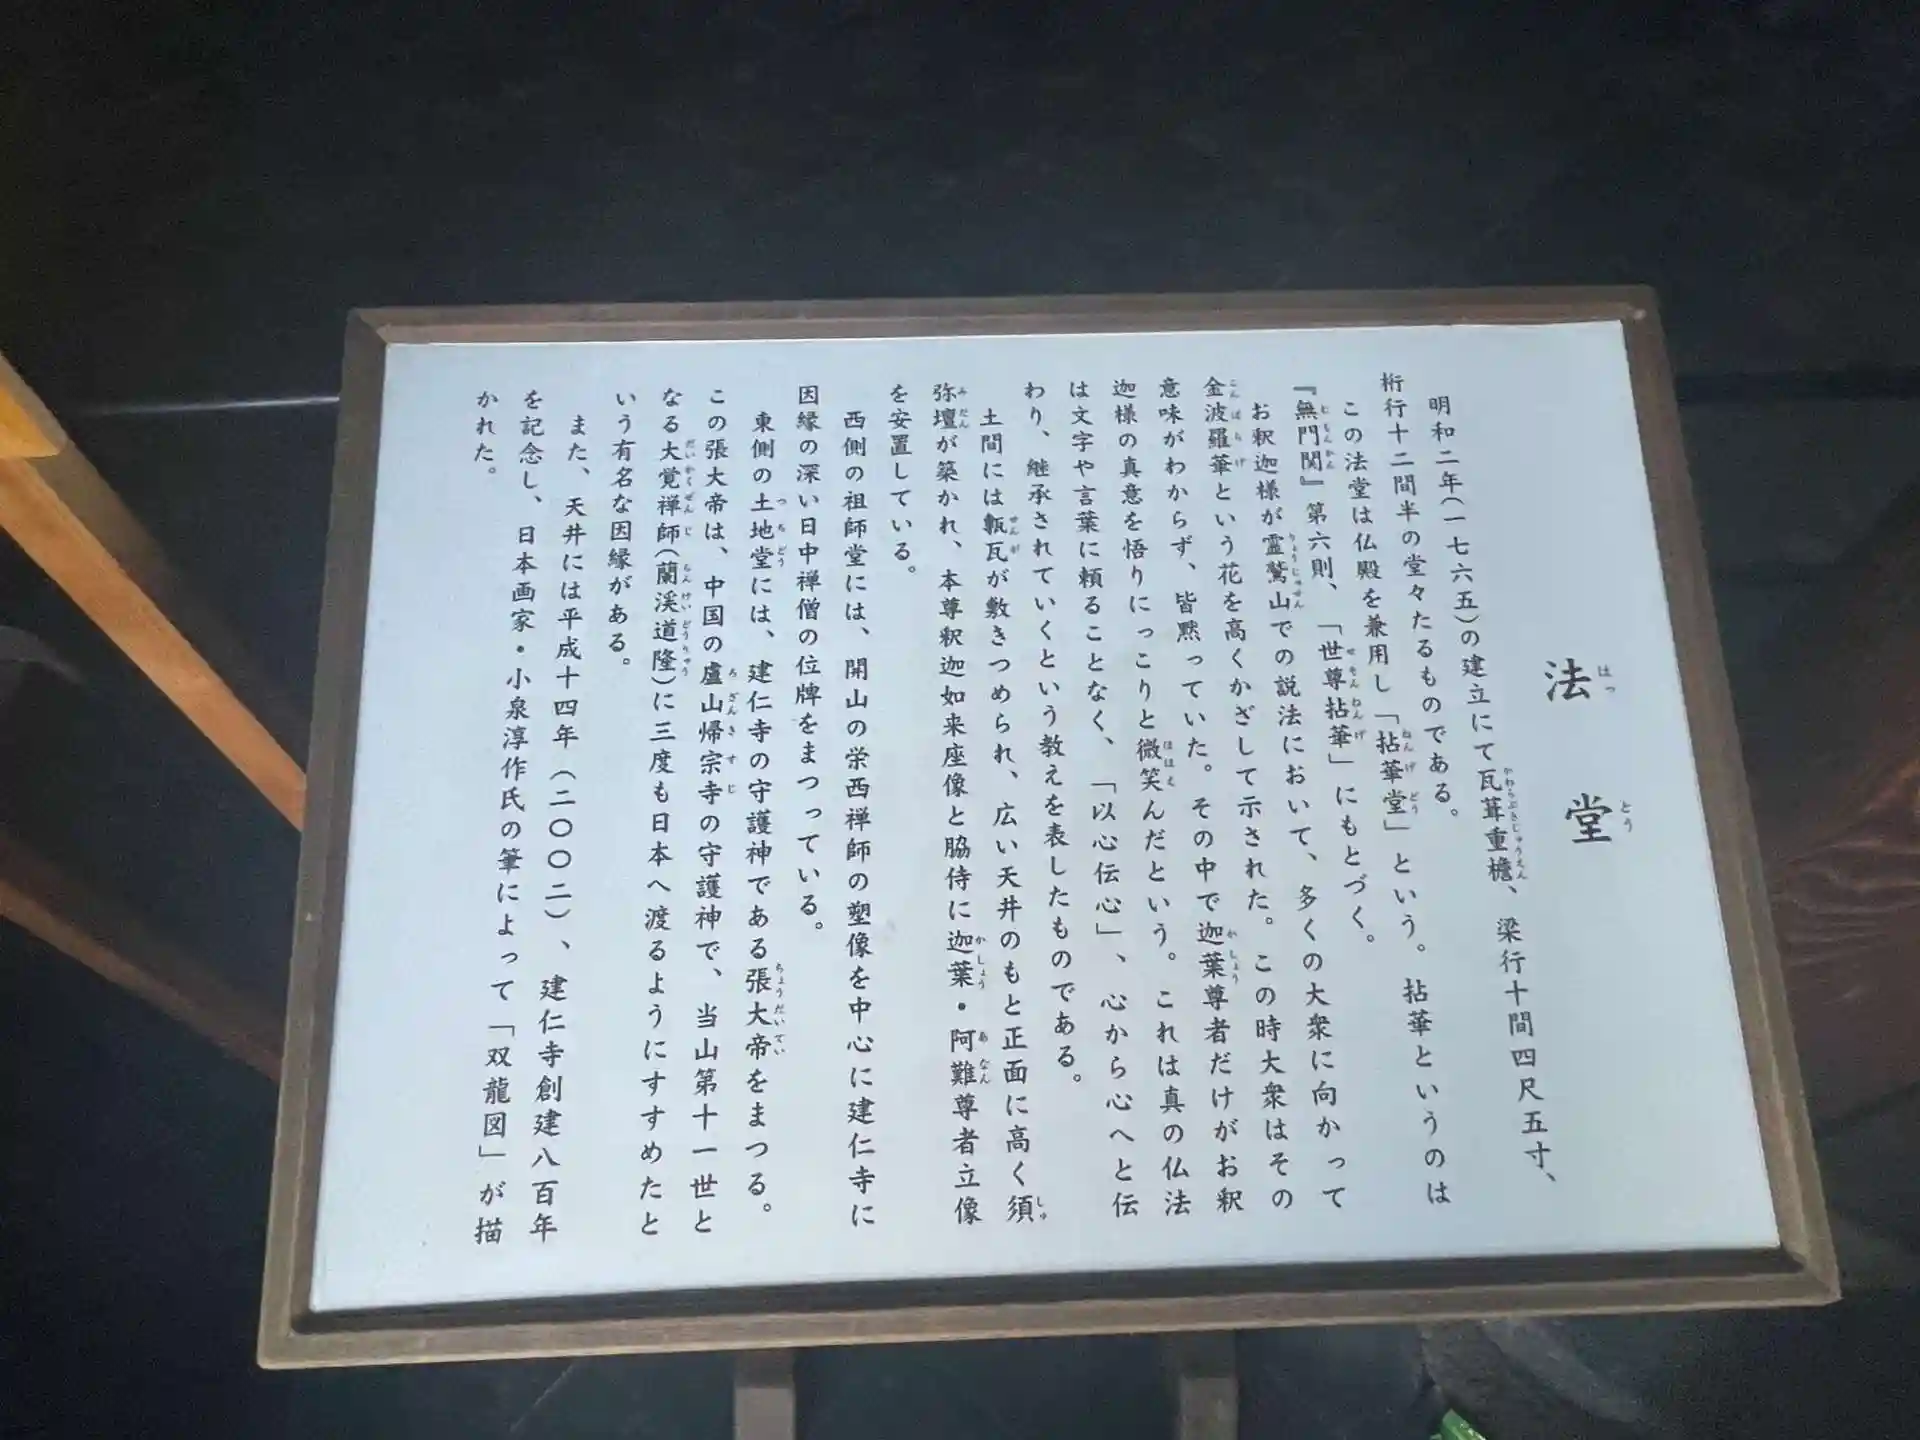 法堂
明和二年(一七六五)の建立にて瓦葺重檐、梁行十間四尺五寸、
桁行十二間半の堂々たるものである。
この法堂は仏殿を兼用し「拈華堂」という。拈華というのは
『無門関』第六則、「世尊拈華」にもとづく。
お釈迦様が霊鷲山での説法において、多くの大衆に向かって
金波羅華という花を高くかざして示された。この時大衆はその
意味がわからず、皆黙っていた。その中で迦葉尊者だけがお釈
迦様の真意を悟りにっこりと微笑んだという。これは真の仏法
は文字や言葉に頼ることなく、「以心伝心」、心から心へと伝
わり、継承されていくという教えを表したものである。
土間には甎瓦が敷きつめられ、広い天井のもと正面に高く須
弥壇が築かれ、本尊釈迦如来座像と脇侍に迦葉・阿難尊者立像
を安置している。
西側の祖師堂には、開山の栄西禅師の塑像を中心に建仁寺に
因縁の深い日中禅僧の位牌をまつっている。
東側の土地堂には、建仁寺の守護神である張大帝をまつる。
この張大帝は、中国の盧山帰宗寺の守護神で、当山第十一世と
なる大覚禅師(蘭渓道隆)に三度も日本へ渡るようにすすめたと
いう有名な因縁がある。
また、天井には平成十四年(二〇〇二)、建仁寺創建八百年
を記念し、日本画家・小泉淳作氏の筆によって「双龍図」が描
かれた。